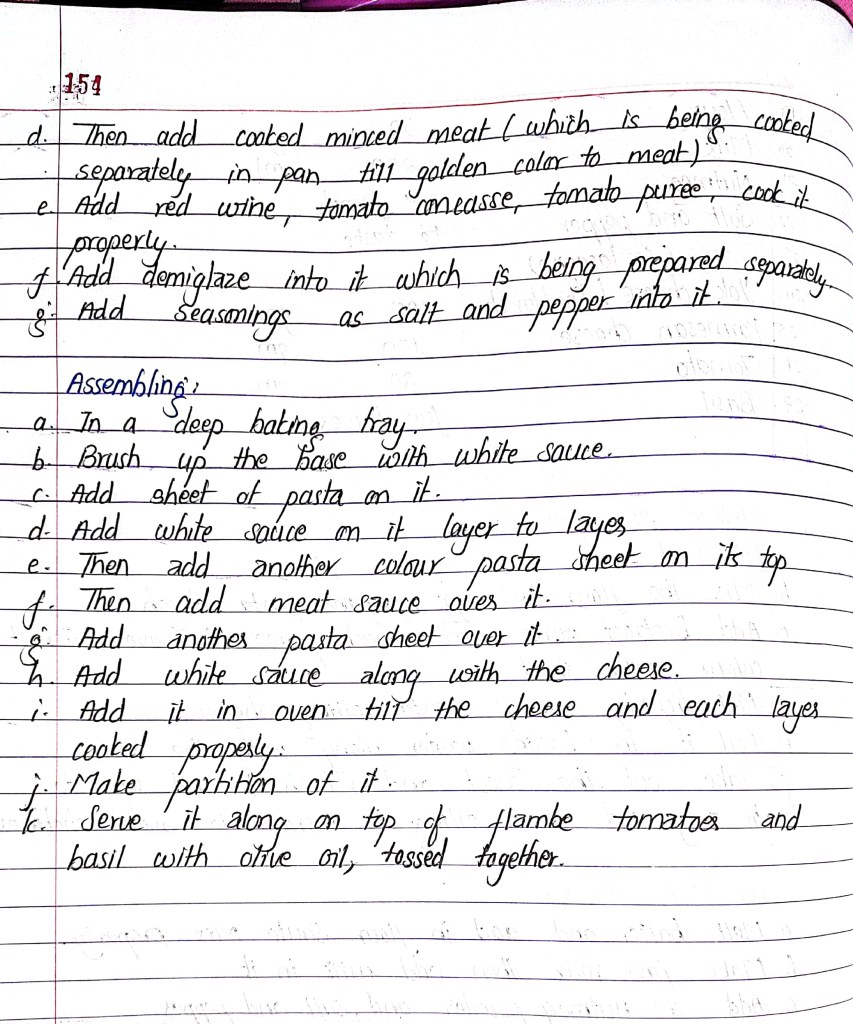 154
d. Then add cooked minced meat (which is being cooked
separately in pan till golden color to meat)
e. Add red wine, tomato concasse, tomato puree, cook it
properly.
f. Add demiglaze into it which is being prepared separately.
g. Add seasonings as salt and pepper into it.
Assembling:
a. In a deep baking tray.
b. Brush up the base with white sauce.
c. Add sheet of pasta on it.
d. Add white sauce on it layer to layer
e. Then add another colour pasta sheet on its top
f. Then add meat sauce over it.
g. Add another pasta sheet over it.
h. Add white sauce along with the cheese.
i. Add it in oven till the cheese and each layer
cooked properly.
j. Make partition of it.
k. Serve it along on top of flambe tomatoes and
basil with olive oil, tossed together.